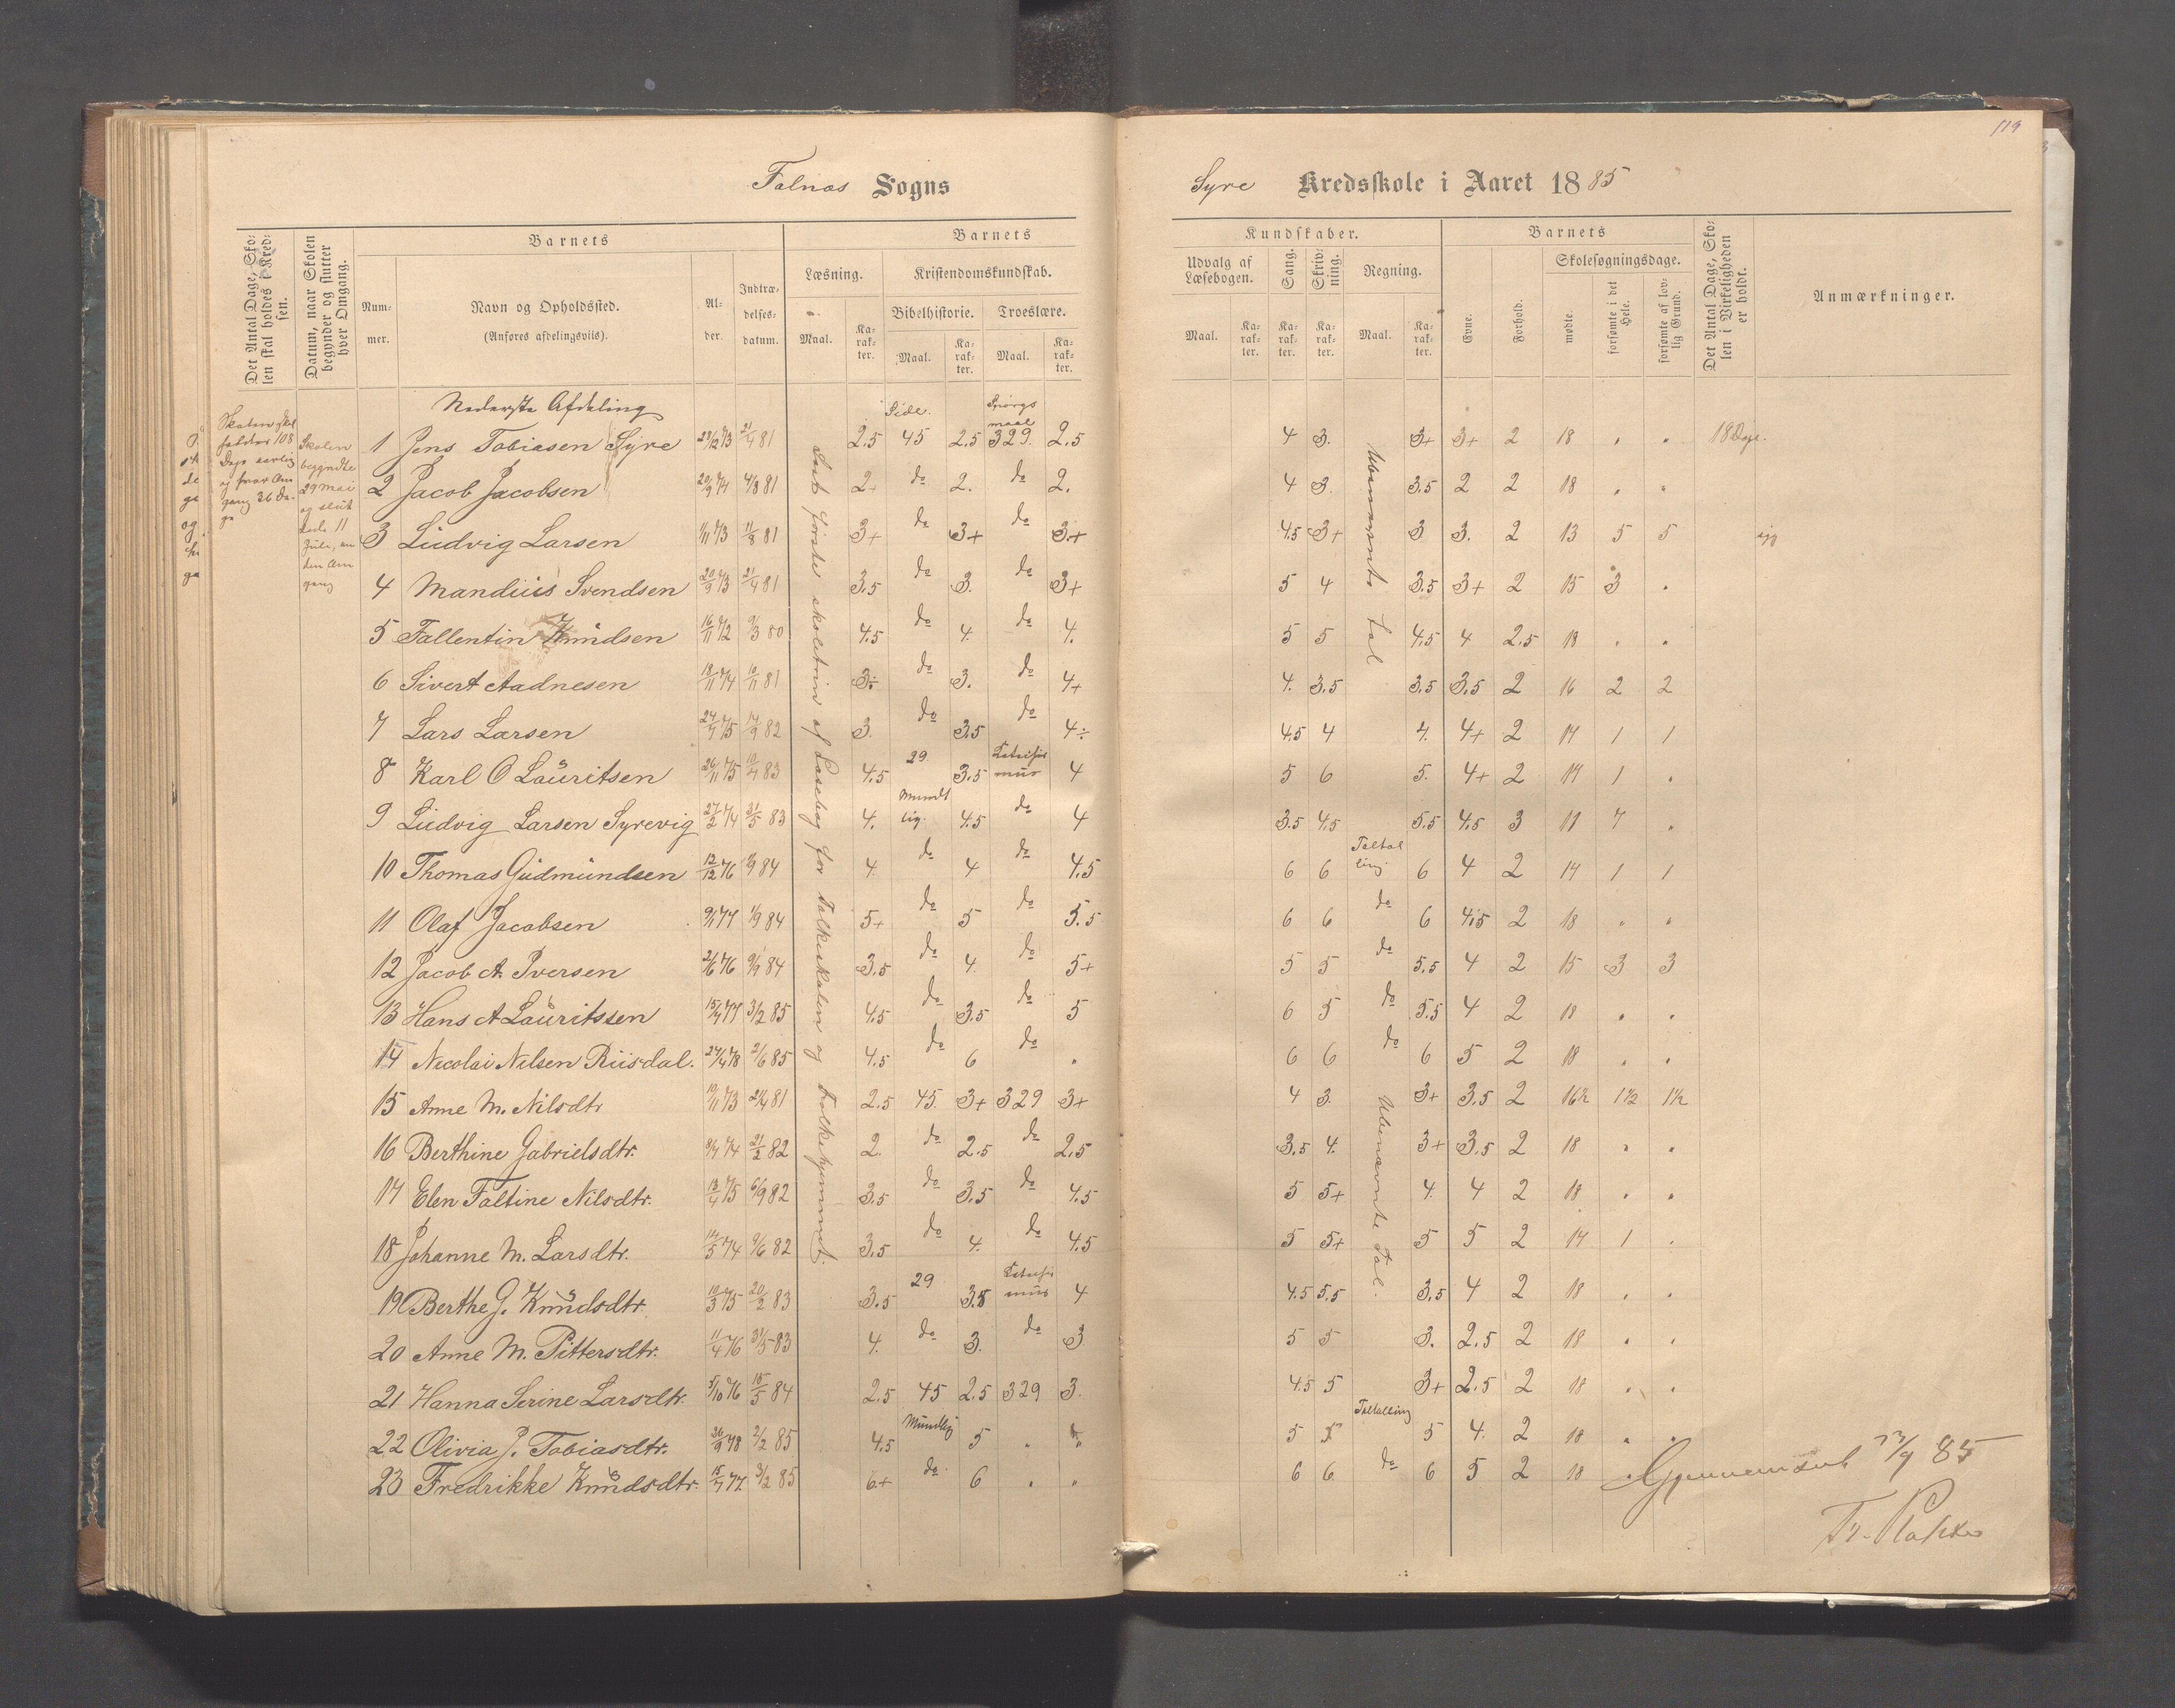 119
Falnæs Sogns
Syre Kredsskole i Aaret 1885
Det Antal Dage, Skolen skal holdes i Kredsen.
Datum, naar Skolen begynder og slutter hver Omgang.
Barnets
Nummer.
Navn og Opholdssted.
(Anføres afdelingsviis).
Alder.
Indtrædelsesdatum.
Barnets
Læsning.
Maal.
Karakter.
Kristendomskundskab.
Bibelhistorie.
Maal.
Karakter.
Troeslære.
Maal.
Karakter.
Kundskaber.
Udvalg af Læsebogen.
Maal.
Karakter.
Sang.
Karakter.
Skrivning.
Karakter.
Regning.
Maal.
Karakter.
Barnets
Evne.
Forhold.
Skolesøgningsdage.
mødte.
forsømte i det Hele.
forsømte af lovlig Grund.
Det Antal Dage, Skolen i Virkeligheden er holdt.
Anmærkninger.
Skolen skal holdes 108 Dage aarlig og hver Omgang 36 Dage
Skolen begyndte 29 Mai og sluttede 11 Juli, anden Omgang
Nederste Afdeling
Side. Spörgsmaal
Læst förste skoletrin af Læsebog for Folkeskolen og Folkehjemmet.
Ubenævnte Tal
1 Jens Tobiasen Syre 28/12 73 21/4 81 2.5 45 2.5 329. 2.5 4 3. 3+ 3+ 2 18 " " 18 Dage.
2 Jacob Jacobsen 20/9 74 4/8 81 2. do 2. do 2. 4 3. 3.5 2 2 18 " "
3 Ludvig Larsen 1/11 73 11/8 81 3+ do 3+ do 3+ 4.5 3+ 3 3. 2 13 5 5
4 Mandius Svendsen 20/9 73 21/4 81 3.5 do 3. do 3+ 5 4 3.5 3+ 2 15 3 "
5 Fallentin Knudsen 16/11 72 9/3 80 4.5 do 4. do 4. 5 5 4.5 4 2.5 18 " "
6 Sivert Aadnesen 18/11 74 10/11 81 3÷ do 3. do 4+ 4. 3.5 3.5 3.5 2 16 2 2
7 Lars Larsen 24/7 75 14/9 82 3. do 3.5 do 4÷ 4.5 4 4. 4+ 2 17 1 1
8 Karl O Lauritsen 26/11 75 10/4 83 4.5 29 3.5 Katechismus 4 5 6 5. 4+ 2 17 1 "
9 Ludvig Larsen Syrevig 27/2 74 31/5 83 4. Mundtlig. 4.5 do 4 3.5 4.5 5.5 4.5 3 11 7 "
10 Thomas Gudmundsen 12/12 76 1/9 84 4. do 4 do 4.5 6 6 Taltalling 6 4 2 17 1 1
11 Olaf Jacobsen 9/1 77 1/9 84 5+ do 5 do 5.5 6 6 do 6 4.5 2 18 " "
12 Jacob A. Iversen 2/6 76 9/9 84 3.5 do 4. do 5+ 5 5 do 5.5 4 2 15 3 3
13 Hans A Lauritssen 15/4 77 3/2 85 4.5 do 3.5 do 5 6 5 do 5.5 4 2 18 " "
14 Nicolai Nilsen Riisdal. 24/4 78 2/6 85 4.5 do 6 do " 6 6 do 6 5 2 18 " "
Ubenævnte Tal.
15 Anne M. Nilsdtr 19/11 73 21/4 81 2.5 45 3+ 329 3+ 4 3. 3+ 3.5 2 16½ 1½ 1½
16 Berthine Gabrielsdtr. 9/7 74 21/2 82 2. do 2.5 do 2.5 3.5 4. 3+ 3.5 2 18 " "
17 Elen Faltine Nilsdtr. 13/4 75 6/9 82 3.5 do 3.5 do 4.5 5 5+ 4. 4 2 18 " "
18 Johanne M. Larsdtr. 12/5 74 9/6 82 3.5 do 4. do 4.5 5 5+ 5 5 2 17 1 "
19 Berthe G. Knudsdtr 10/3 75 20/2 83 3.5 29 3.5 Katechismus 4 4.5 5.5 3.5 4 2 18 " "
20 Anne M. Pittersdtr. 11/4 76 31/5 83 4. do 3. do 3 5 5 3. 2.5 2 18 " "
21 Hanna Serine Larsdtr. 5/10 76 15/5 84 2.5 45 2.5 329 3. 4.5 5 3+ 2.5 2 18 " "
22 Olivia J. Tobiasdtr. 26/9 78 2/2 85 4.5 Mundtlig 5 " 5 Taltalling 5 4. 2 18 " "
23 Fredrikke Knudsdtr. 15/7 77 3/2 85 6+ do 6 " " 6 6 do 6 5 2 18 "
Gjennemset 23/9 85